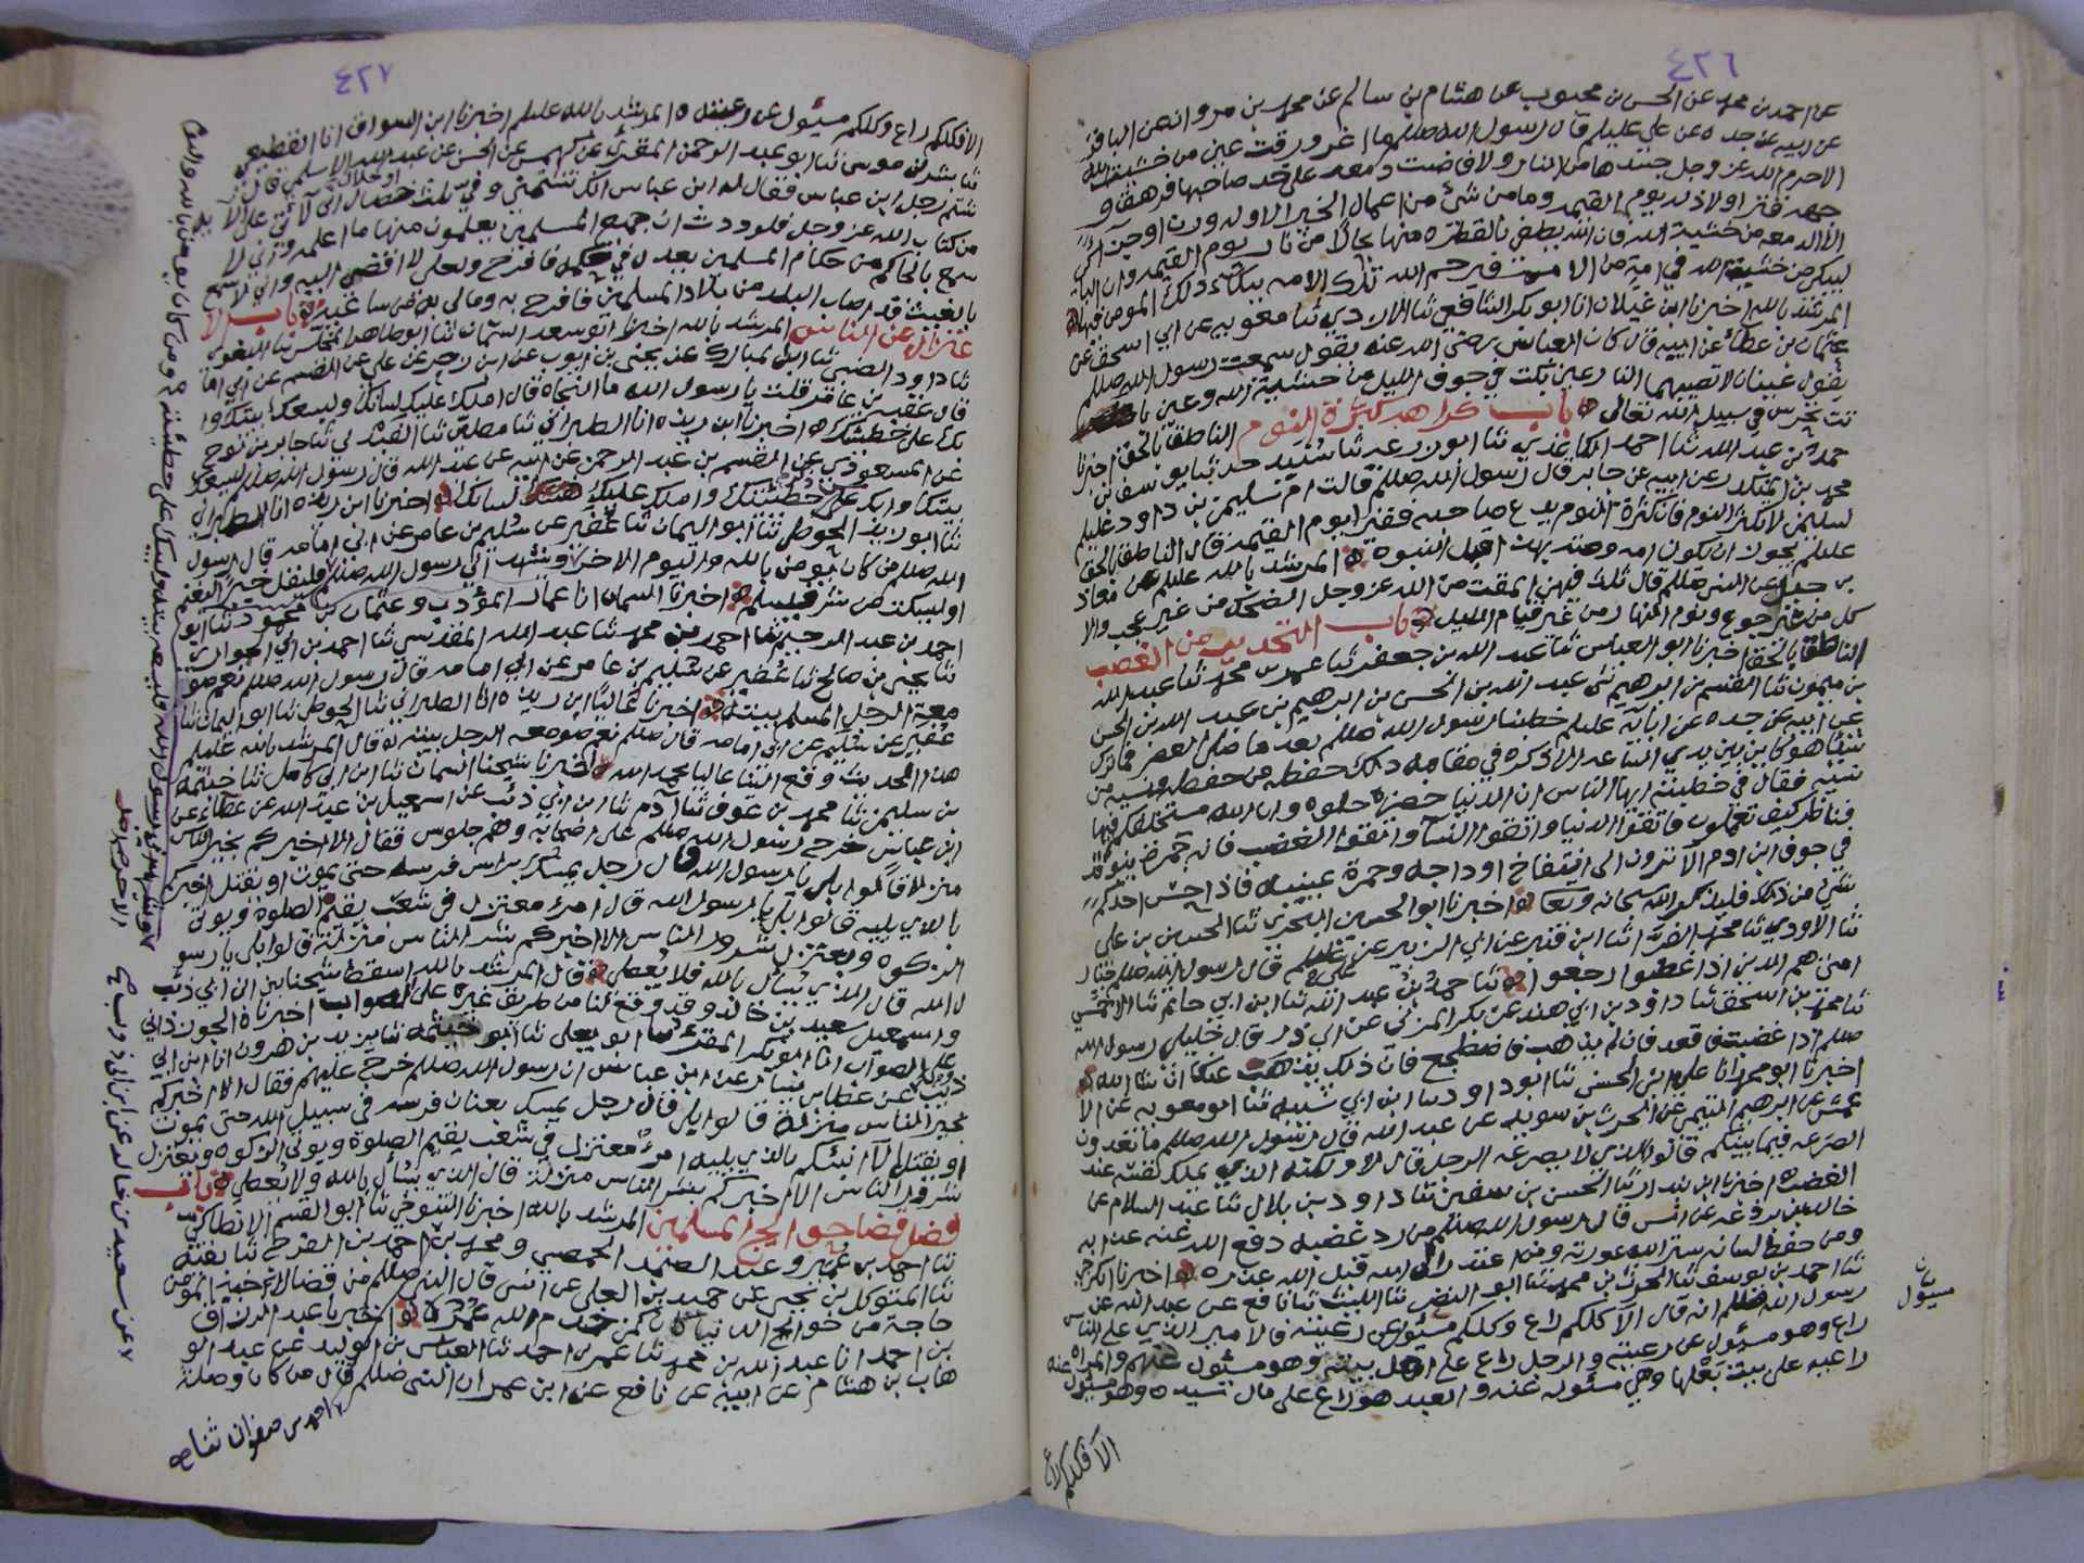 ٤٢٦
عن احمد بن محمد عن الحسن بن محبوب عن هشام بن سالم عن محمد بن مروان عن الباقر
عن ابيه عن جده عن علي عليلم قال رسول الله صللم ما اغرورقت عين من خشية الله
الا حرم الله عز وجل جسدها من النار ولا فاضت دمعه على خد صاحبها فرهق و
جهه قتر ولا ذله يوم القيمه وما من شئ من اعمال الخير الا وله وزن او جزاء
الا الدمعه من خشية الله فان الله يطفي بالقطره منها بحارا من نار يوم القيمه وان الباكي
ليبكي من خشية الله في امة من الامم فيرحم الله تلك الامه ببكاء ذلك المومن فيها
المرشد بالله اخبرنا ابن غيلان انا ابو بكر الشافعي ثنا الازدي ثنا معويه عن ابي اسحق عن
عثمان بن عطا عن ابيه قال كان العباس رضي الله عنه يقول سمعت رسول الله صللم
يقول عينان لا تصيبهما النار عين بكت في جوف الليل من خشية الله وعين با
تت تحرس في سبيل الله تعالى باب كراهة كثرة النوم الناطق بالحق اخبرنا
حمد بن عبد الله ثنا احمد الكاغذي ثنا ابو زرعه ثنا سنيد حدثنا يوسف بن
محمد بن المنكدر عن ابيه عن جابر قال رسول الله صللم قالت ام سليمن بن داود عليلم
لسليمن لا تكثر النوم فان كثرة النوم يدع صاحبه فقيرا يوم القيمه قال الناطق بالحق
عليلم يجوز ان تكون امه وصته بهذا قبل النبوه المرشد بالله عليلم عن معاذ
بن جبل عن النبي صللم قال ثلث فيهن المقت من الله عز وجل الضحك من غير عجب والا
كل من غير جوع ونوم النهار من غير قيام الليل باب التحذير من الغضب
الناطق بالحق اخبرنا ابو العباس ثنا عبد الله بن جعفر ثنا عمر بن محمد ثنا عبد الله
بن ميمون ثنا القسم بن ابرهيم ثني عبد الله بن الحسن بن ابرهيم بن عبد الله بن الحسن
عن ابيه عن جده عن ابائه عليلم خطبنا رسول الله صللم بعد ما صلى العصر فما ترك
شيئا هو كاين بين يدي الساعه الا ذكره في مقامه ذلك حفظه من حفظه ونسيه من
نسيه فقال في خطبته ايها الناس ان الدنيا خضره حلوه وان الله مستخلفكم فيها
فناظر كيف تعملون فاتقوا الدنيا واتقوا النسآ واتقوا الغضب فانه جمره تتوقد
في جوف ابن ادم الا ترون الى انتفاخ اوداجه وحمرة عينيه فاذا احس احدكم
شئ من ذلك فليذكر الله سبحانه وتعالى اخبرنا ابو الحسين البحري ثنا الحسين بن علي
ثنا الاودي ثنا محمد الفرا ثنا ابن قنبر عن ابي الزبير عن علي عليلم قال رسول الله صللم خيار
امتي هم الذين اذا غضبوا رجعوا ثنا حمد بن عبد الله ثنا ابن ابي حاتم ثنا الاحمسي
ثنا محمد بن اسحق ثنا داود بن ابي هند عن بكر المزني عن ابي ذر قال خليلي رسول الله
صللم اذا غضبت فاقعد فان لم يذهب فاضطجع فان ذلك يذهب عنك ان شا الله
اخبرنا ابو محمد انا علي بن الحسن ثنا ابو داود ثنا ابن ابي شيبه ثنا ابو معويه عن الا
عمش عن ابرهيم التيمي عن الحرث بن سويد عن عبد الله قال رسول الله صللم ما تعدون
الصرعه فيما بينكم قالوا الذي لا يصرعه الرجل قال لا ولكنه الذي يملك نفسه عند
الغضب اخبرنا ابن بندار ثنا الحسن بن سفين ثنا داود بن بلال ثنا عبد السلام عن
خالد بن بردعه عن انس قال رسول الله صللم من رد غضبه دفع الله عنه عذابه
ومن حفظ لسانه ستر الله عورته ومن اعتذر الى الله قبل الله عذره اخبرنا
ثنا احمد بن يوسف ثنا الحرث بن محمد ثنا ابو النضر ثنا الليث ثنا نافع عن عبد الله عن
رسول الله صللم انه قال الا كلكم راع وكلكم مسئول عن رعيته فالامير الذي على الناس
راع وهو مسئول عن رعيته والرجل راع على اهل بيته وهو مسئول عنهم والمراه
راعيه على بيت بعلها وهي مسئوله عنه والعبد راع على مال سيده وهو مسئول عنه
بيان
مسئول
الا فكلكم راع
٤٢٧
الا فكلكم راع وكلكم مسئول عن رعيته المرشد بالله عليلم اخبرنا ابن السواق انا القطيعي
ثنا بشر بن موسى ثنا ابو عبد الرحمن المقرئ عن كهمس عن الحسن عن عبد الله الاسلمي قال
شتم رجل ابن عباس فقال له ابن عباس انك تشتمني وفي ثلث خصال اني لاتي على الآيه
من كتاب الله عز وجل فلوددت ان جميع المسلمين يعلمون منها ما اعلم واني لا
سمع بالحاكم من حكام المسلمين يعدل في حكمه فافرح ولعلي لا اقضي اليه واني لاسمع
بالغيث قد اصاب البلد من بلاد المسلمين فافرح به ومالي بارض سائمه باب الا
عتزال عن الناس المرشد بالله اخبرنا ابو سعد السمان ثنا ابو طاهر المخلص ثنا البغوي
ثنا داود الضبي ثنا ابن المبارك عن يحيى بن ايوب عن ابن زحر عن علي عن القسم عن ابي اما
قال عقبة بن عامر قلت يا رسول الله ما النجاه قال املك عليك لسانك وليسعك بيتك وا
بك على خطيئتك اخبرنا ابن ريذه انا الطبراني ثنا مطين ثنا ثنا جابر بن نوح
عن المسعودي عن القسم بن عبد الرحمن عن ابيه عن عبد الله قال رسول الله صللم ليسعك
بيتك وابك على خطيئتك واملك عليك لسانك اخبرنا ابن ريذه انا الطبراني
ثنا ابو زيد الحوطي ثنا ابو اليمان ثنا عفير عن سليم بن عامر عن ابي امامه قال رسول
الله صللم من كان يؤمن بالله واليوم الاخر ويشهد اني رسول الله فليقل خيرا ليغنم
او ليسكت عن شر فيسلم اخبرنا السمان انا عمار المؤدب وعثمان بن محمود ثنا ابو
احمد بن عبد الرحيم ثنا احمد بن محمد ثنا عبد الله المقدسي ثنا احمد بن ابي الحواري
ثنا يحيى بن صالح ثنا عفير عن سليم بن عامر عن ابي امامه قال رسول الله صللم نعم صو
معة الرجل المسلم بيته اخبرنا عاليا ابن ريذه انا الطبراني ثنا الحوطي ثنا ابو اليمان ثنا
عفير عن سليم عن ابي امامه قال صللم نعم صومعه الرجل بيته قال المرشد بالله عليلم
هذا الحديث وقع الينا عاليا بحمد الله اخبرنا شيخنا السمان ثنا ابن ابي كامل ثنا خيثمه
بن سليمن ثنا محمد بن عوف ثنا آدم ثنا ابن ابي ذئب عن اسمعيل بن عبد الله عن عطاء عن
ابن عباس خرج رسول الله صللم على اصحابه وهم جلوس فقال الا اخبركم بخير الناس
منزلا قالوا بلى يا رسول الله قال رجل يمسك براس فرسه حتى يموت او يقتل اخبركم
بالذي يليه قالوا بلى يا رسول الله قال امرؤ معتزل في شعب يقيم الصلوة ويوتي
الزكوه ويعتزل شرور الناس الا اخبركم بشر الناس منزلة قالوا بلى يا رسو
ل الله قال الذي يسأل بالله فلا يعطي قال المرشد بالله اسقط شيخنا بين ابن ابي ذئب
واسمعيل سعيد بن خالد وقد وقع لنا من طريق غيره على الصواب اخبرناه الجوزذاني
على الصواب انا ابو بكر المقرئ ثنا ابو يعلى ثنا ابو خيثمه ثنا يزيد بن هرون انا ابن ابي
ذئب عن عطا بن يسار عن ابن عباس ان رسول الله صللم خرج عليهم فقال الا اخبركم
بخير الناس منزلة قالوا بلى قال رجل يمسك بعنان فرسه في سبيل الله حتى يموت
او يقتل الا انبئكم بالذي يليه امرؤ معتزل في شعب يقيم الصلوة ويوتي الزكوه ويعتزل
شرور الناس الا اخبركم بشر الناس منزلة قال الذي يسأل بالله ولا يعطي باب
فضل قضا حوايج المسلمين المرشد بالله اخبرنا التنوخي ثنا ابو القسم الانطاكي
ثنا احمد بن عمير وعبد الصمد الحمصي ومحمد بن احمد بن ثنا بقيه
ثنا المتوكل بن يحيى عن حميد بن العلى عن انس قال النبي صللم من قضا لاخيه المومن
حاجة من حوايج الدنيا كان كمن خدم الله عمره اخبرنا عبد الرزاق
بن احمد انا عبد الله بن محمد ثنا عمر بن احمد ثنا العباس بن الوليد عن عبد الو
هاب بن هشام عن ابيه عن نافع عن ابن عمر ان النبي صللم قال من كان وصلة
احمد بن صفوان ثنا صح